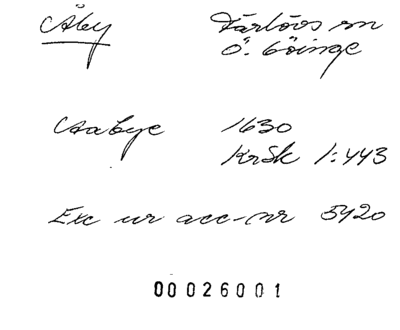 Åby Färlövs sn
Ö. Göinge
Aabye 1630
KrSk 1:443
Exc ur acc-nr 5420
00026001